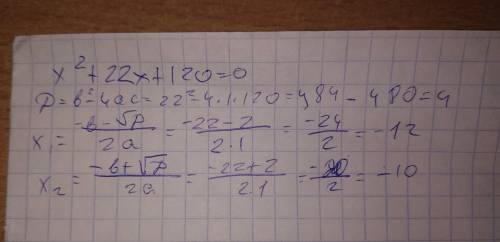 x²+22x+120=0
D=b²-4ac=22²-4·1·120=484-480=4
x₁=(-b-√D)/2a=(-22-2)/2·1=-24/2=-12
x₂=(-b+√D)/2a=(-22+2)/2·1=-20/2=-10